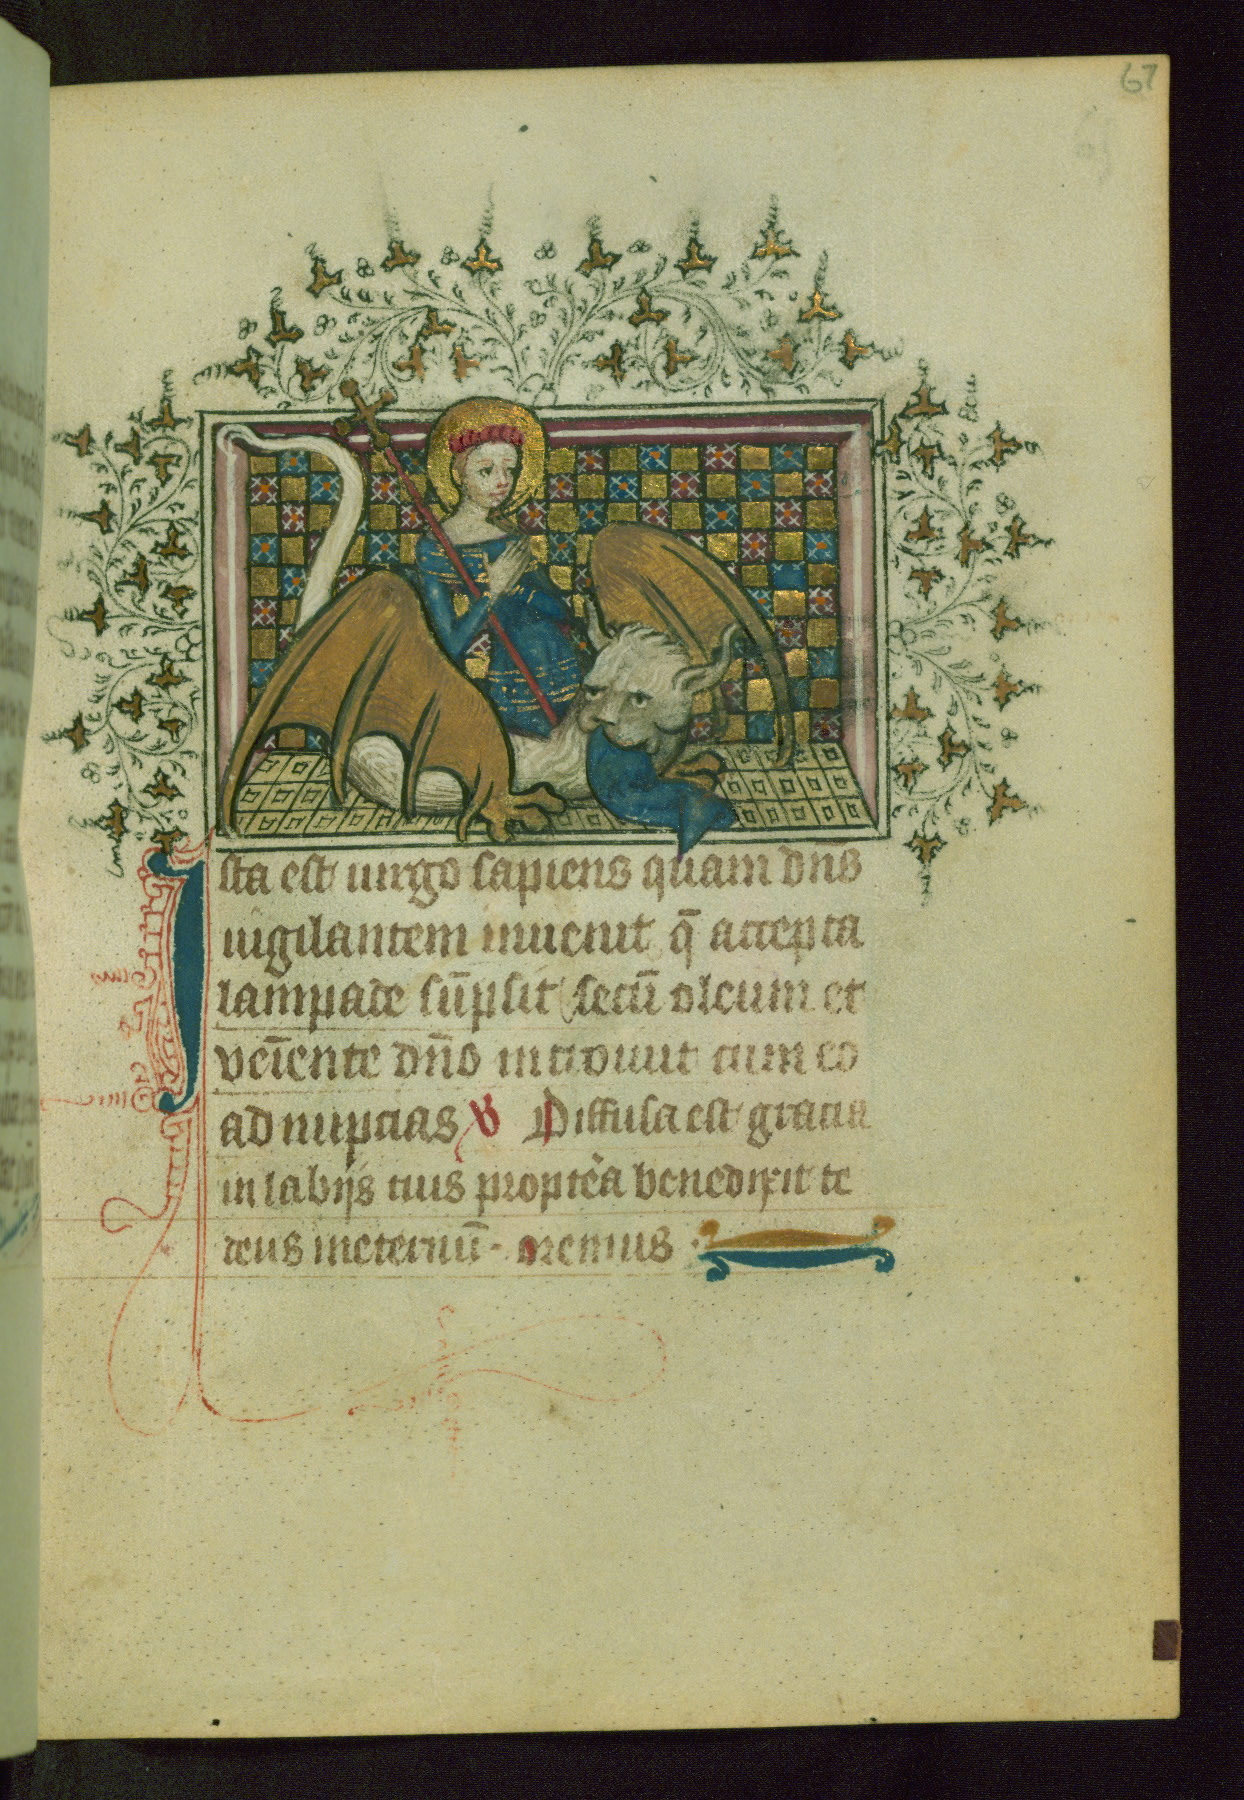 67
Ista est uirgo sapiens quam dn̄s
uigilantem inuenit q̄ accepta
lampade sūpsit secū oleum et
veīente dn̄o introiuit cum eo
ad nupcias ℣ Diffusa est gracia
in labijs tuis propteͣa benedixit te
deus ineternū. oremus